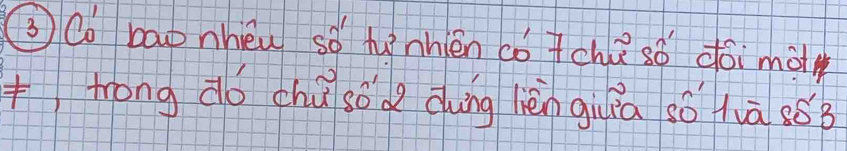 ③ Có bao nhiêu số tự nhiên có 7 chữ số đôi một
≠, trong đó chữ số 2 đứng liền giữa số 1 và số 3